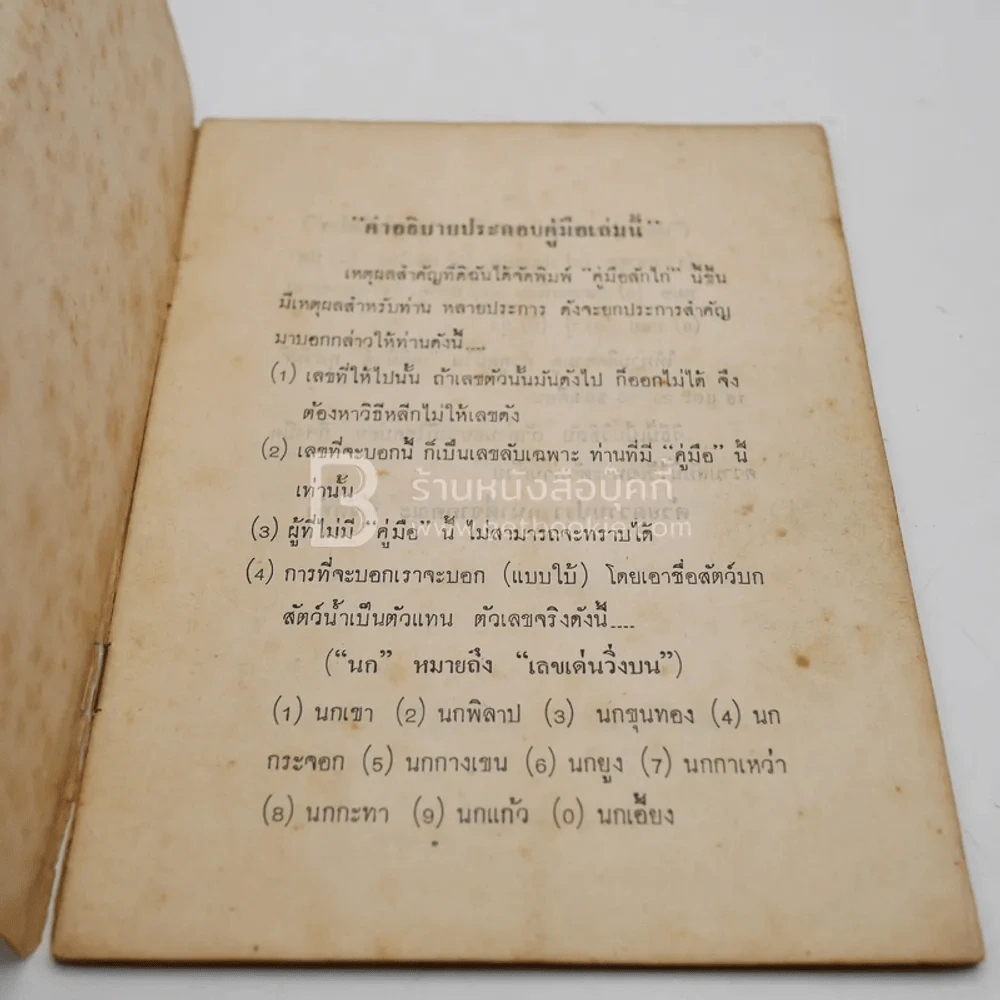 “คำอธิบายประกอบคู่มือเล่มนี้”
เหตุผลสำคัญที่ดิฉันได้จัดพิมพ์ “คู่มือสักไก่” นี้ขึ้น
มีเหตุผลสำหรับท่าน หลายประการ ดังจะยกประการสำคัญ
มาบอกกล่าวให้ท่านดังนี้....
(1) เลขที่ให้ไปนั้น ถ้าเลขตัวนั้นมันดังไป ก็ออกไม่ได้ จึง
ต้องหาวิธีหลีกไม่ให้เลขดัง
(2) เลขที่จะบอกนี้ ก็เป็นเลขลับเฉพาะ ท่านที่มี “คู่มือ” นี้
เท่านั้น
ร้านหนังสือบุ๊คกี้
(3) ผู้ที่ไม่มี “คู่มือ” นี้ ไม่สามารถจะทราบได้
(4) การที่จะบอกเราจะบอก (แบบใบ้) โดยเอาชื่อสัตว์บก
สัตว์น้ำเป็นตัวแทน ตัวเลขจริงดังนี้....
(“นก” หมายถึง “เลขเด่นวิ่งบน”)
(1) นกเขา (2) นกพิลาป (3) นกขุนทอง (4) นก
กระจอก (5) นกกางเขน (6) นกยูง (7) นกกาเหว่า
(8) นกกะทา (9) นกแก้ว (0) นกเอี้ยง